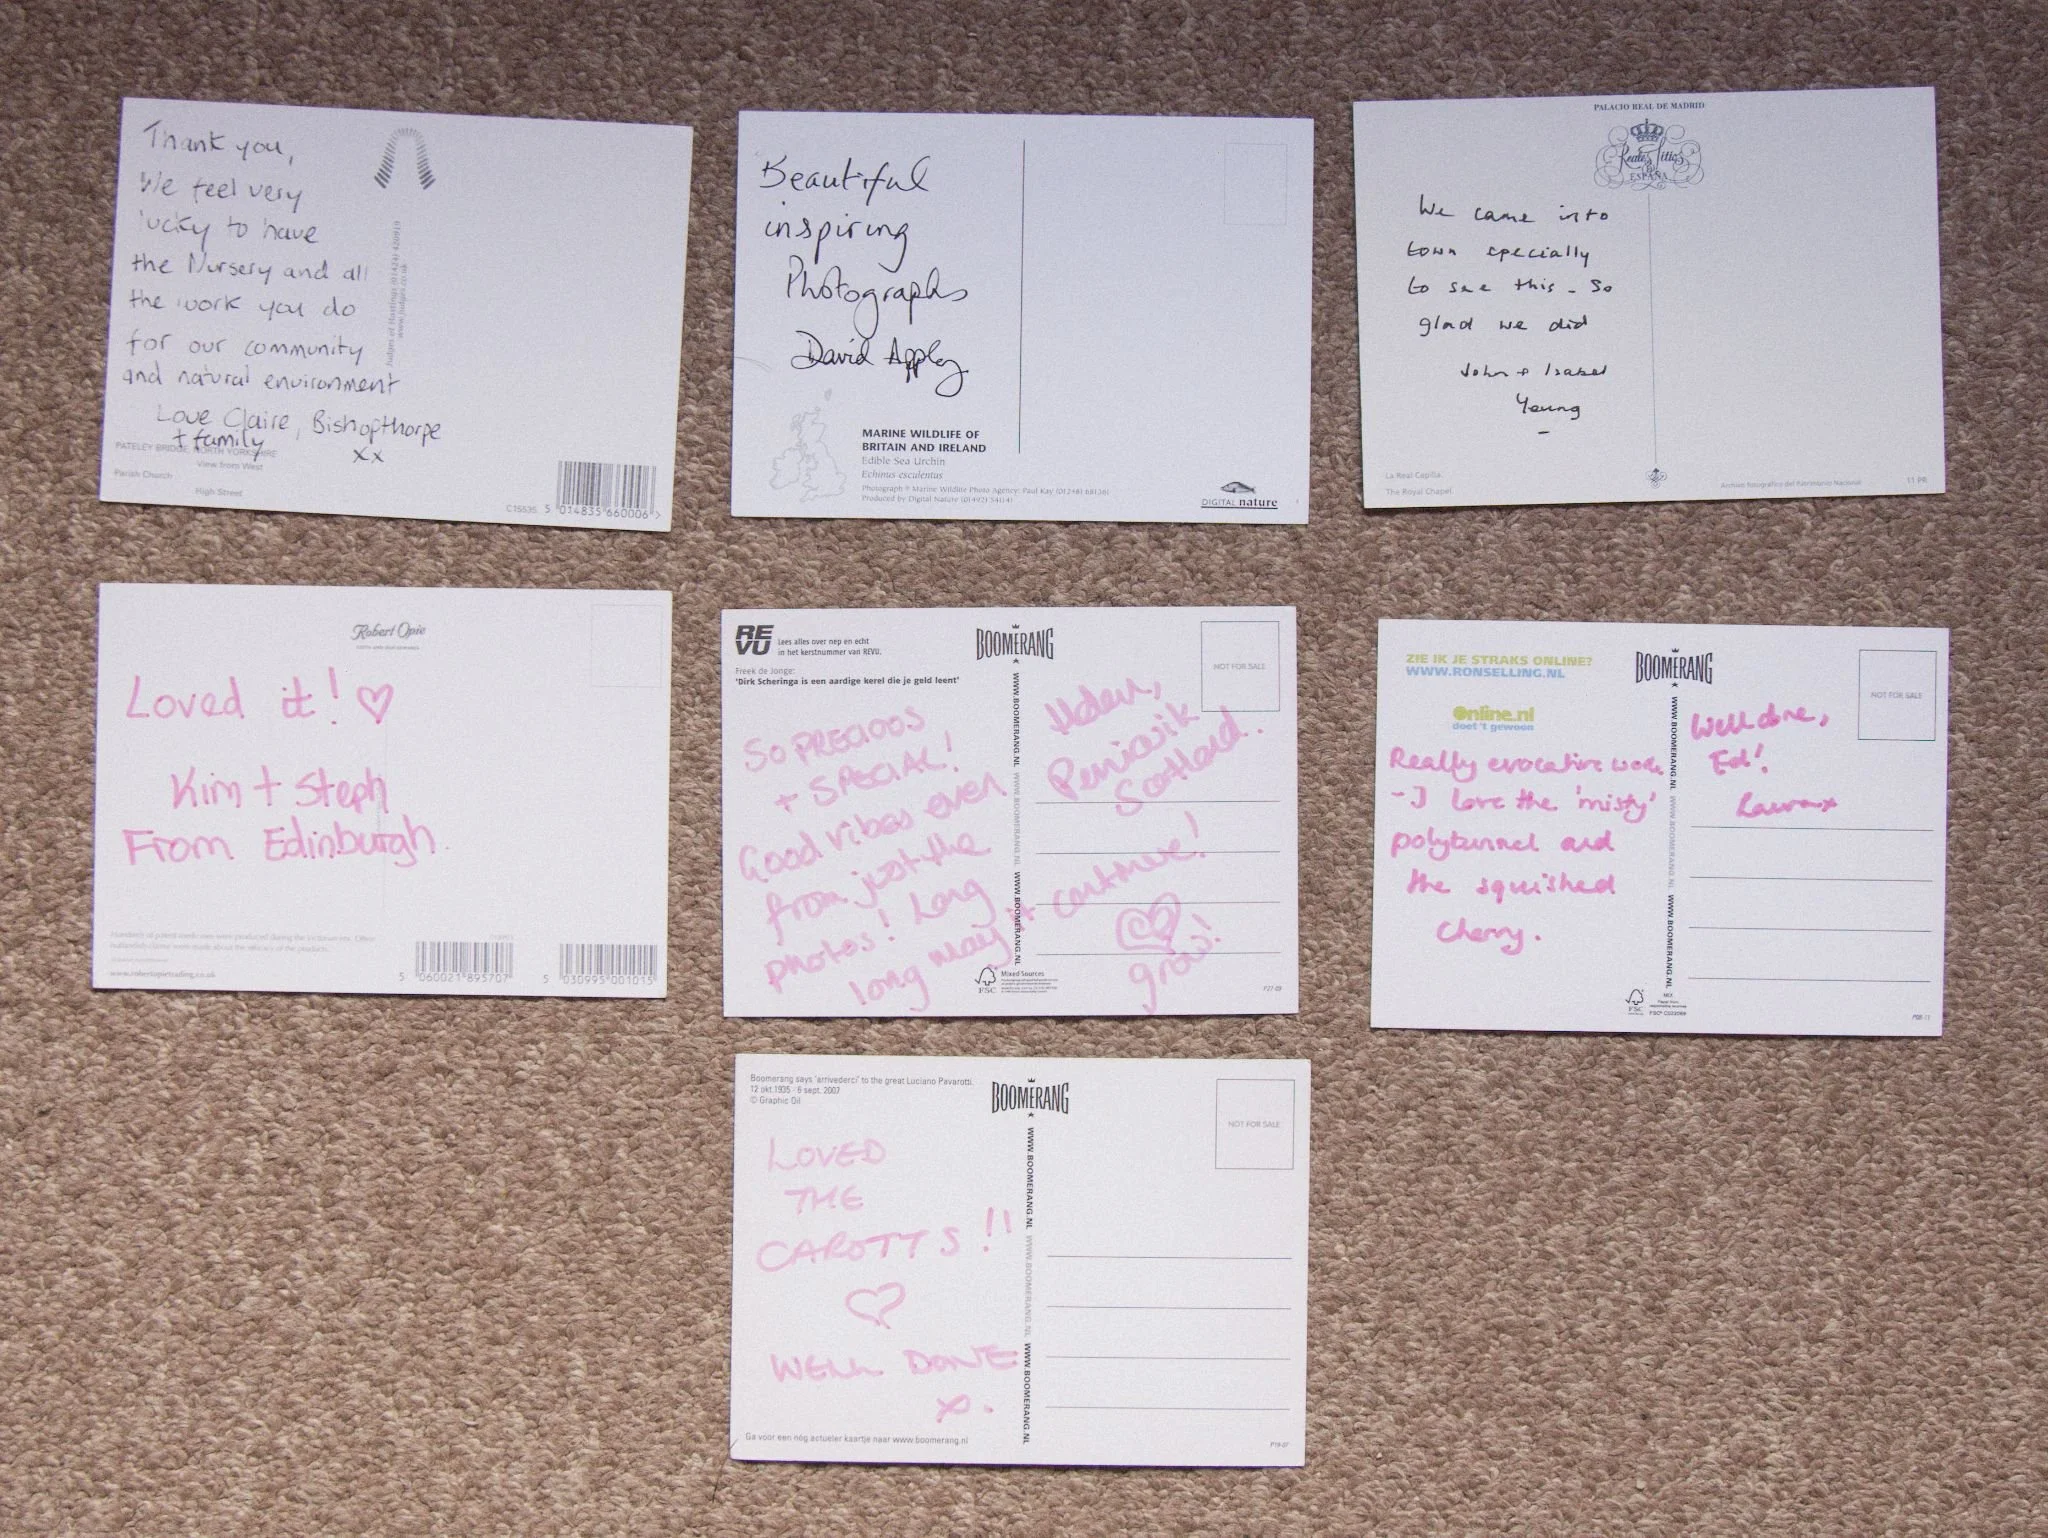 Thank you,
We feel very
lucky to have
the Nursery and all
the work you do
for our community
and natural environment
Love Claire, Bishopthorpe
+ family
xx
Judges of Hastings (01424) 420919
www.judges.co.uk
PATELEY BRIDGE, NORTH YORKSHIRE
View from West
Parish Church
High Street
C15535
5 014835 660006 >
Beautiful
inspiring
Photographs
David Appley
MARINE WILDLIFE OF
BRITAIN AND IRELAND
Edible Sea Urchin
Echinus esculentus
Photograph © Marine Wildlife Photo Agency: Paul Kay (01248) 681361
Produced by Digital Nature (01492)
DIGITAL nature
PALACIO REAL DE MADRID
Reales Sitios
de
ESPAÑA
We came into
town specially
to see this - so
glad we did
John + Isabel
Young
La Real Capilla
The Royal Chapel
Archivo fotográfico del Patrimonio Nacional
11 PR
Robert Opie
Loved it! ♡
Kim + Steph
From Edinburgh.
www.robertopietrading.co.uk
5 060021 895707
5 030995 001015
REVU
Lees alles over nep en echt
in het kerstnummer van REVU.
Freek de Jonge:
'Dirk Scheringa is een aardige kerel die je geld leent'
BOOMERANG
NOT FOR SALE
WWW.BOOMERANG.NL WWW.BOOMERANG.NL WWW.BOOMERANG.NL
So PRECIOUS
+ SPECIAL!
Good vibes even
from just the
photos! Long
long may it continue!
♡
grow!
Helen,
Penicuik
Scotland.
FSC
Mixed Sources
P27-09
ZIE IK JE STRAKS ONLINE?
WWW.RONSELLING.NL
Online.nl
doet 't gewoon
BOOMERANG
NOT FOR SALE
WWW.BOOMERANG.NL WWW.BOOMERANG.NL WWW.BOOMERANG.NL
Really evocative work
- I love the 'misty'
polytunnel and
the squished
cherry.
Well done,
Ed!
Laura x
FSC
MIX
Paper from
responsible sources
FSC® C022069
P08-11
Boomerang says 'arrivederci' to the great Luciano Pavarotti.
12 okt.1935 - 6 sept. 2007
© Graphic Oil
BOOMERANG
NOT FOR SALE
WWW.BOOMERANG.NL WWW.BOOMERANG.NL WWW.BOOMERANG.NL
LOVED
THE
CAROTTS!!
♡
WELL DONE
x.
Ga voor een nóg actueler kaartje naar www.boomerang.nl
P19-07